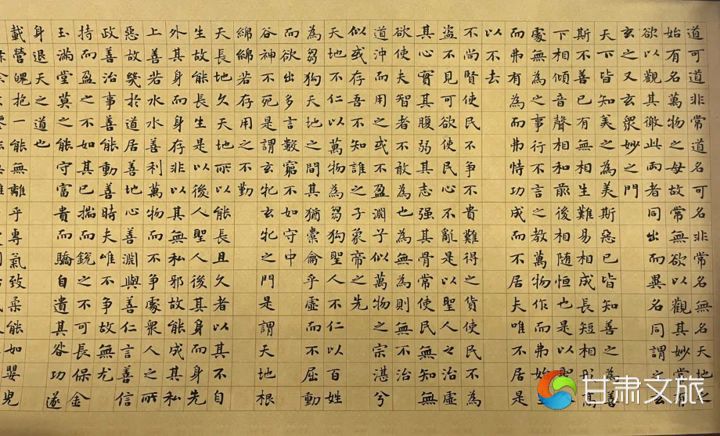 道可道非常道名可名非常名無名天地之
始有名萬物之母故常無欲以觀其妙常有
欲以觀其徼此兩者同出而異名同謂之玄
玄之又玄眾妙之門
天下皆知美之為美斯惡已皆知善之為善
斯不善已有無相生難易相成長短相形高
下相傾音聲相和前後相隨恒也是以聖
處無為之事行不言之教萬物作而弗
而弗有為而弗恃功成而不居夫唯不居是
以不去
不尚賢使民不爭不貴難得之貨使民不為
盜不見可欲使民心不亂是以聖人之治虛
其心實其腹弱其志強其骨常使民無
欲使夫智者不敢為也為無為則無不治
道沖而用之或不盈淵兮似萬物之宗湛兮
似或存吾不知誰之子象帝之先
天地不仁以萬物為芻狗聖人不仁以百姓
為芻狗天地之間其猶橐龠乎虛而不屈動
而愈出多言數窮不如守中
谷神不死是謂玄牝玄牝之門是謂天地根
綿綿若存用之不勤
天長地久天地所以能長且久者以其不自
生故能長生是以聖人後其身而身先
外其身而身存非以其無私邪故能成其私
上善若水水善利萬物而不爭處眾人之所
惡故幾於道居善地心善淵與善仁言善信
政善治事善能動善時夫唯不爭故無尤
持而盈之不如其已揣而銳之不可長保金
玉滿堂莫之能守富貴而驕自遺其咎功遂
身退天之道也
載營魄抱一能無離乎專氣致柔能如嬰兒
甘肃文旅